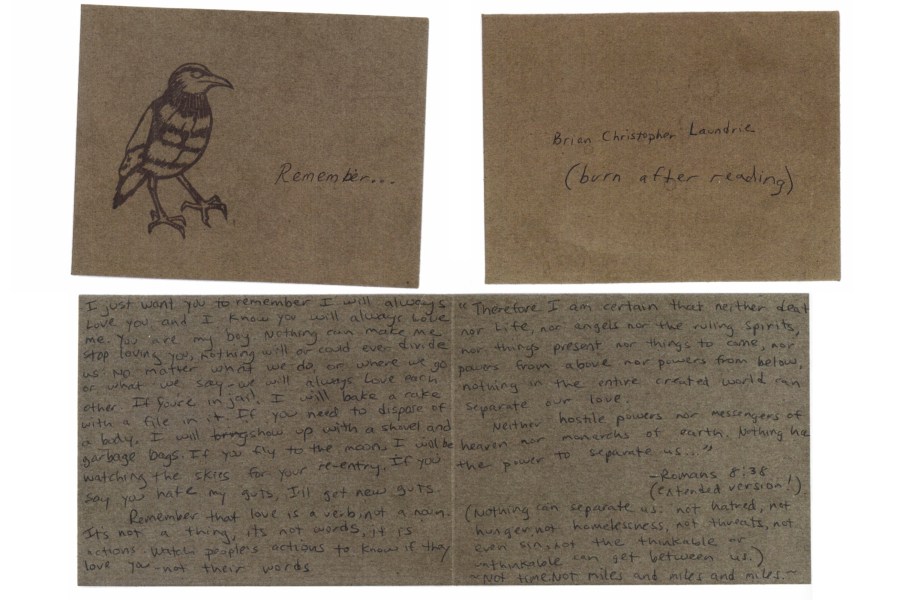 Remember...
Brian Christopher Laundrie
(burn after reading)
I just want you to remember I will always
love you and I know you will always love
me. You are my boy. Nothing can make me
stop loving you, nothing will or could ever divide
us. No matter what we do, or where we go
or what we say - we will always love each
other. If you're in jail, I will bake a cake
with a file in it. If you need to dispose of
a body, I will show up with a shovel and
garbage bags. If you fly to the moon, I will be
watching the skies for your re-entry. If you
say you hate my guts, I'll get new guts.
Remember that love is a verb, not a noun.
It's not a thing, its not words, it is
actions. Watch people's actions to know if they
love you - not their words.
"Therefore I am certain that neither death
nor life, nor angels nor the ruling spirits,
nor things present nor things to come, nor
powers from above nor powers from below,
nothing in the entire created world can
separate our love.
Neither hostile powers nor messengers of
heaven nor monarchs of earth. Nothing has
the power to separate us..."
-Romans 8:38
(extended version!)
(Nothing can separate us: not hatred, not
hunger, not homelessness, not threats, not
even sin, not the thinkable or
unthinkable can get between us.)
~Not time. Not miles and miles and miles.~